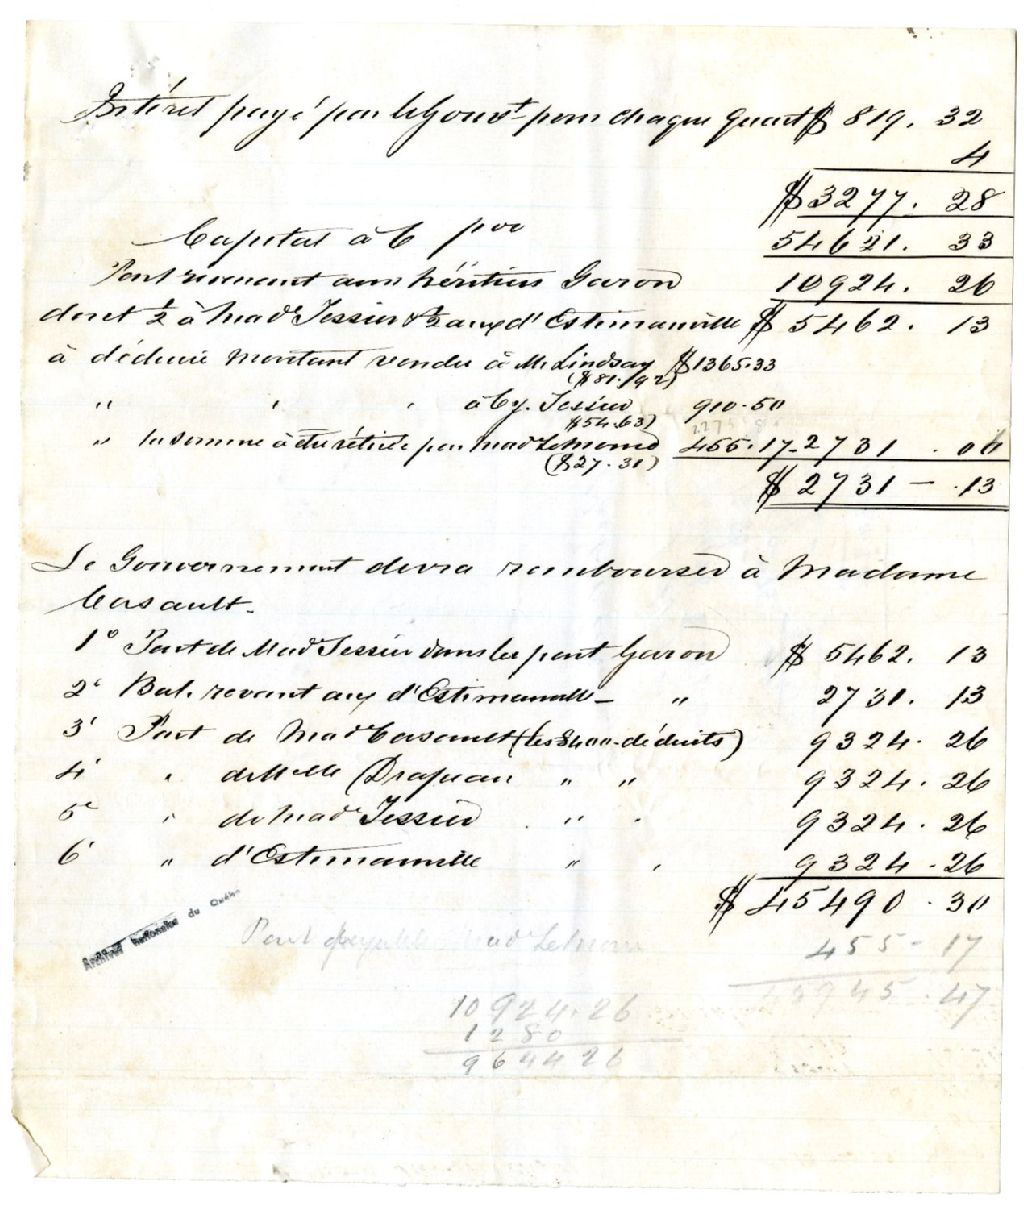 Intérêt payé par le Gouvt pour chaque quart $ 819. 32
4
$ 3277. 28
Capital à 6 poc 54621. 33
Part revenant aux héritiers Garon 10924. 26
dont ½ à Mad Tessier & ½ aux d'Estimauville $ 5462. 13
à déduire montant vendu à Mr Lindsay $1365.33
($81.92)
" " " à Cy. Tessier 910.50
$54.63)
" la somme à être retirée par Mad Lemoine 455.17 - 2731 . 00
($27.31)
$ 2731 — .13
Le Gouvernement devra rembourser à Madame
Casault.
1º Part de Mad Tessier dans les part Garon $ 5462. 13
2º Bal. revant aux d'Estimauville - " 2731. 13
3º Part de Mad Casault (les $1600 déduits) 9324. 26
4º " de Melle Drapeau " " 9324. 26
5º " de Mad Tessier " " 9324. 26
6º " d'Estimauville " " 9324. 26
$ 45490. 30
Part payable Mad Lemoine 455 - 17
45945. 47
10924.26
1280
9644 26
Archives Nationales du Québec